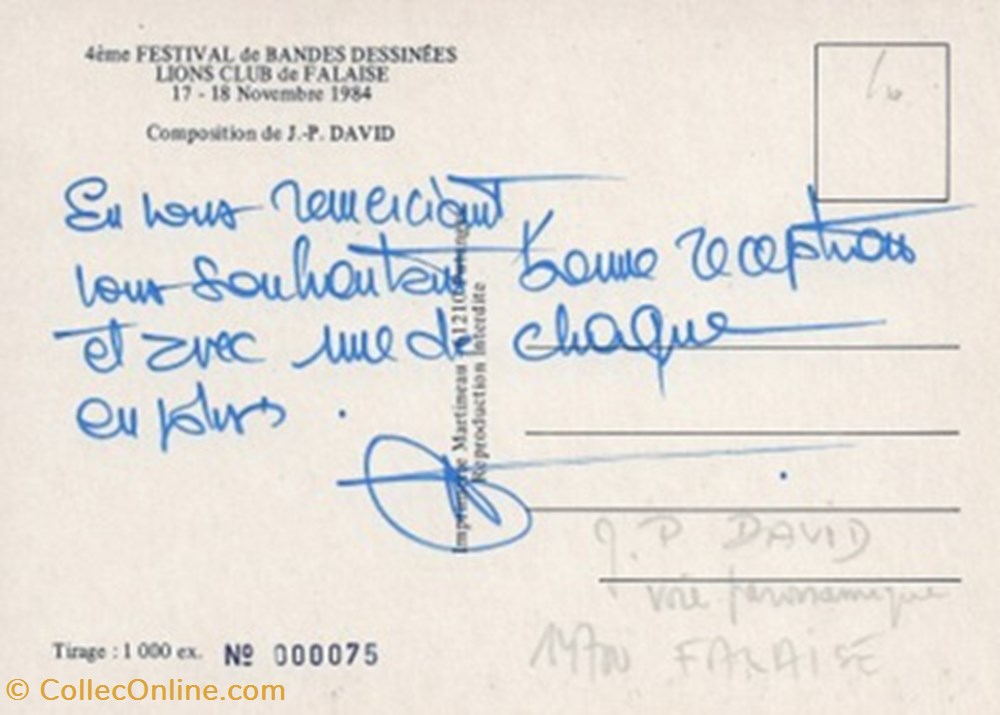 4ème FESTIVAL de BANDES DESSINÉES
LIONS CLUB de FALAISE
17 - 18 Novembre 1984
Composition de J.-P. DAVID
En vous remerciant
vous souhaitant bonne réception
et avec une de chaque
en plus.
Imprimerie Martineau
Reproduction Interdite
J. P DAVID
voie panoramique
14700 FALAISE
Tirage : 1 000 ex. Nº 000075
© CollecOnline.com